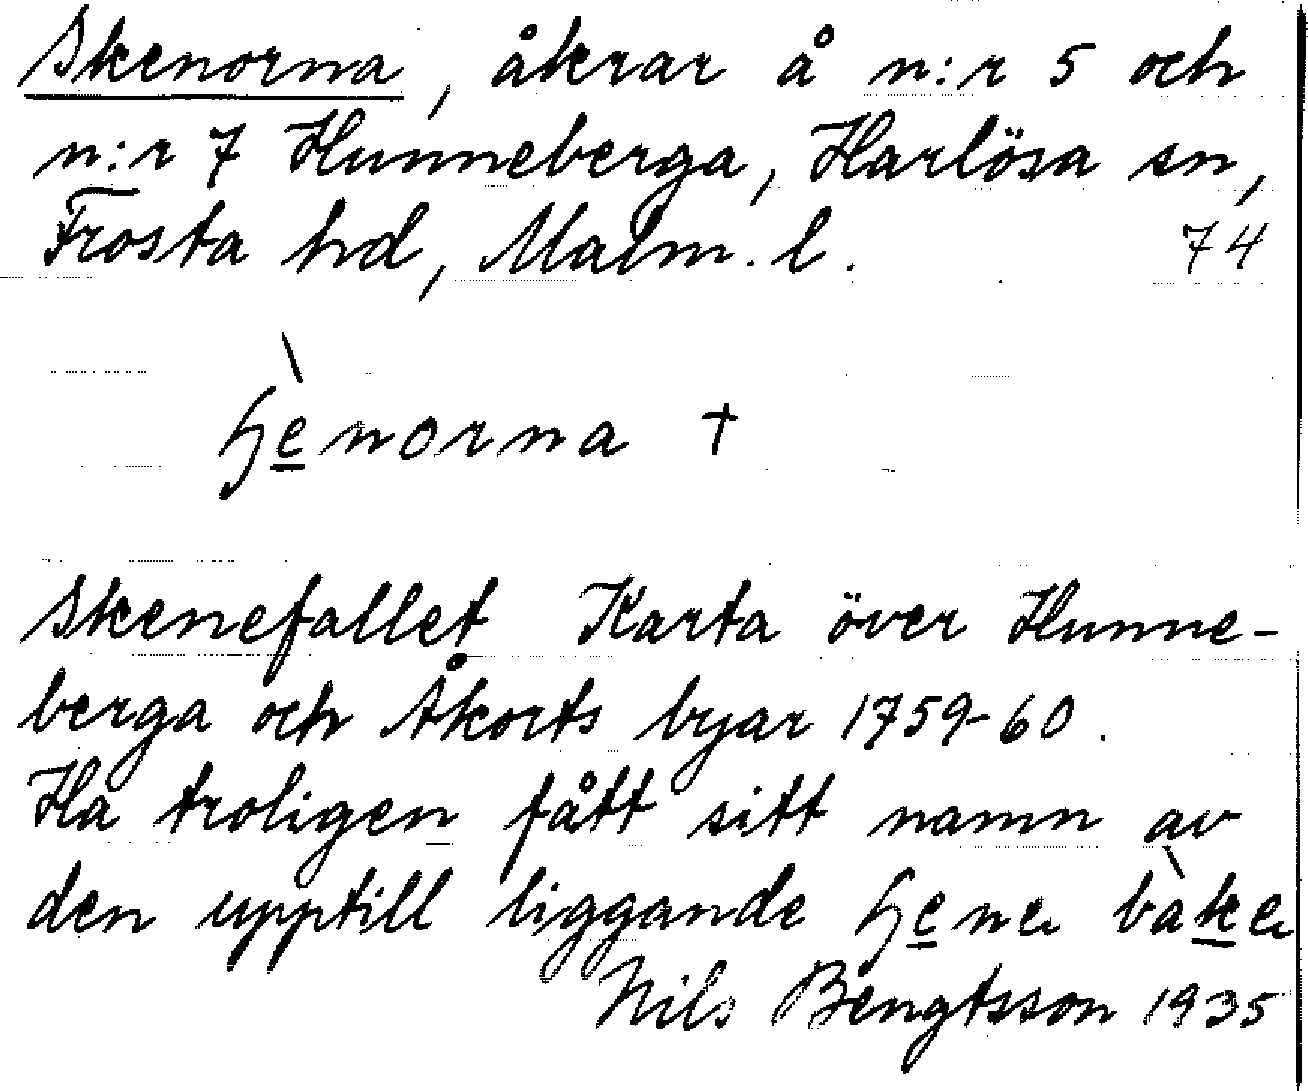 Skenorna, åkrar å n:r 5 och
n:r 7 Hunneberga, Harlösa sn,
Frosta hd, Malm. l. 74
ɧènorna †
Skenefallet Karta över Hunne-
berga och Åkorts byar 1759-60.
Ha troligen fått sitt namn av
den upptill liggande ɧene bàke
Nils Bengtsson 1935